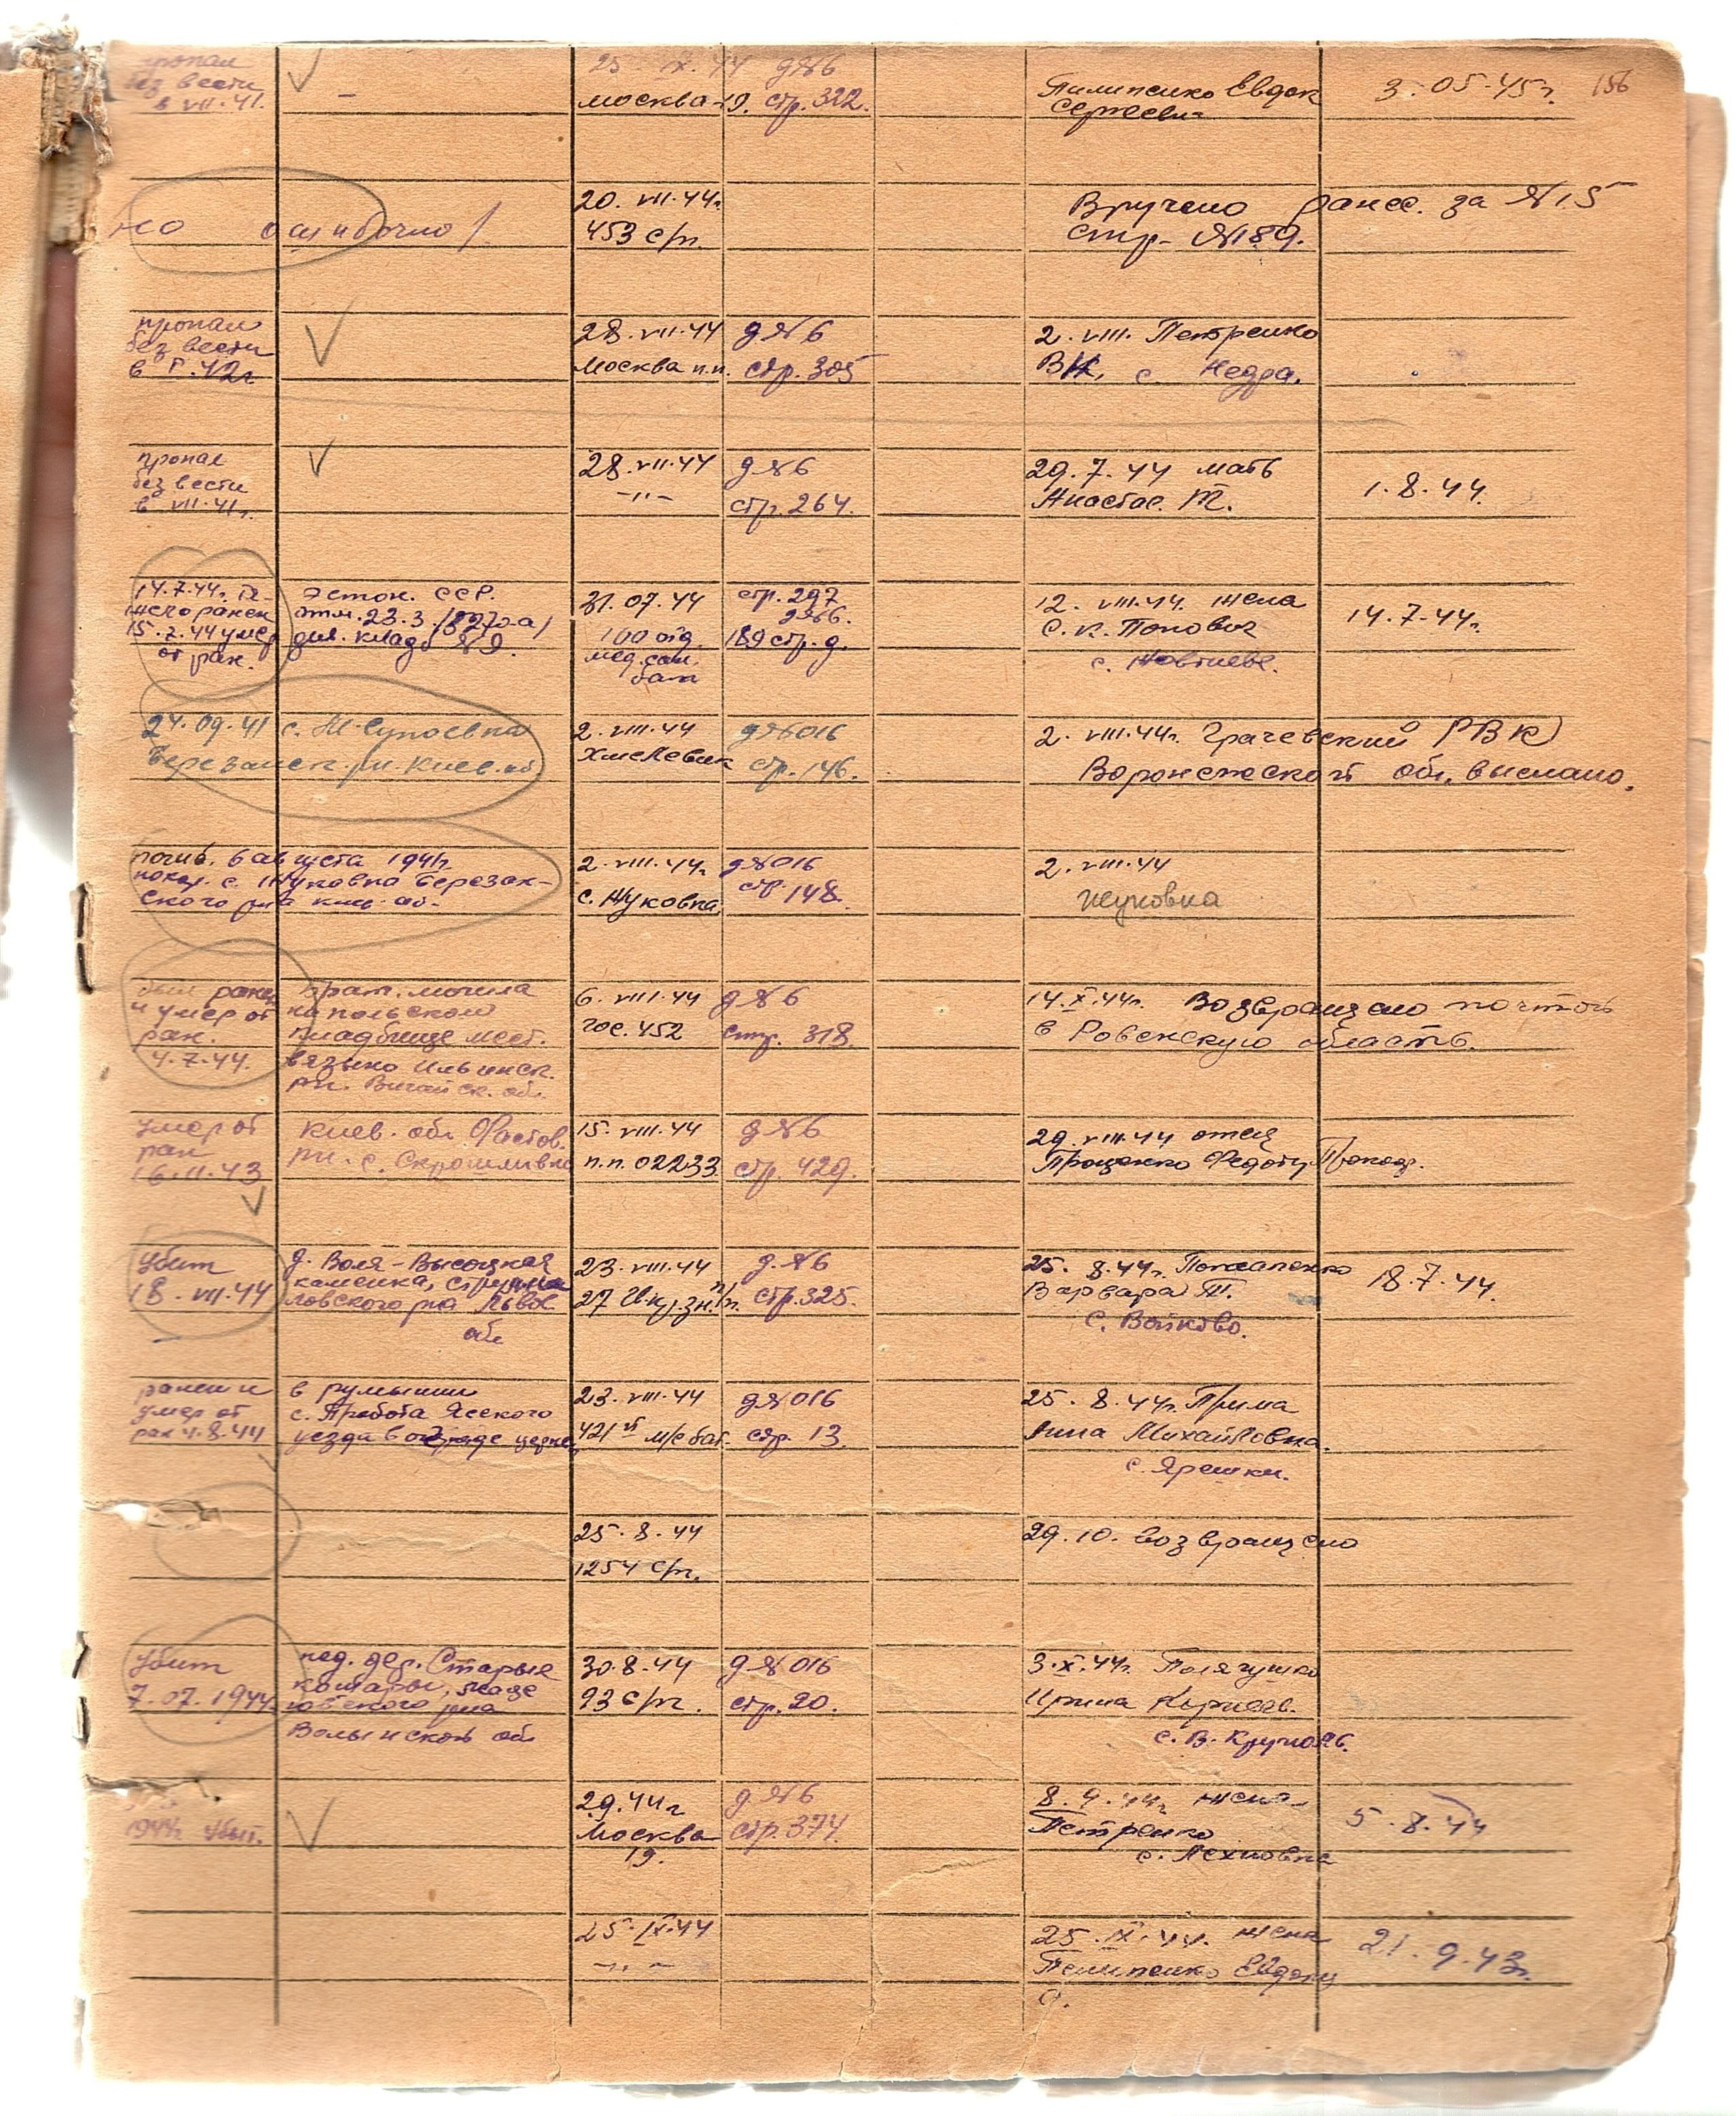 пропал
без вести
в VII.41.
25 IX.44 д№6
Москва-19. стр. 322.
Пилипенко Евдок
Сергеевн
3.05.45г.
156
ошибочно
20. VII.44г.
453 с/п.
Вручено ранее. за №15
стр. №189.
пропал
без вести
в 42г
28. VII.44
Москва п.п.
д№6
стр. 305
2. VIII. Петренко
с. Недра.
пропал
без вести
в VII.41г.
28. VII.44
-"-
д№6
стр. 264.
29. 7. 44 мать
Анастас. Т.
1. 8. 44.
14.7.44г. тя-
жело ранен
15.7.44 умер
от ран.
Эстон. ССР.
клад. №9.
31. 07. 44
100 отд.
мед. сан.
бат
стр. 297
д№6.
189 стр. д.
12. VIII.44. жена
С. К. Попович
с.
14.7.44г.
24.09.41 с. М-Супоевка
Березанск. р-н. Киев. об
2. VIII.44
Хмелевик
д№016
стр. 146.
2. VIII.44г. Грачевский РВК
Воронежской обл. выслано.
погиб. 6 августа 1941г.
похор. с. Жуковка Березан-
ского р-на Киев. об-
2. VIII.44г.
с. Жуковка
д№016
стр. 148.
2. VIII.44
Жуковка
был ранен
и умер от
ран.
4.7.44.
Брат. могила
на польском
кладбище мест.
6. VIII.44
гос. 452
д№6
стр. 318.
14.X.44г. Возвращено почтой
в Ровенскую область.
умер от
ран
16.11.43
Киев. обл Фастов.
рн. с.
15. VIII.44
п.п. 02233
д№6
стр. 429.
29. VIII.44 отец
Проценко Федоту Прокоф.
убит
18. VII.44
д. Воля-Высоцкая
ловского р-на Львов
обл
23. VIII.44
27
д. №6
стр. 325.
25. 8. 44г.
Варвара Т.
с. Войково.
18.7.44.
ранен и
умер от
ран 4.8.44
в румынии
с. Пробота Ясского
уезда в ограде церкв
23. VIII.44
421й м/с бат.
д№016
стр. 13.
25. 8. 44г. Прима
Анна Михайловна.
с. Ярешки.
25. 8. 44
1254 с/п.
29. 10. возвращено
убит
7.07.1944г.
под. дер. Старые
ровского р-на
Волынской обл
30. 8. 44
93 с/п.
д№016
стр. 20.
3.X.44г. Полягушко
Ирина Корнеев.
с. В. Круполь.
1944г убит.
2.9.44г
Москва
19.
д.№6
стр. 374.
8. 9. 44г жена
Петренко
с. Лехновка
5. 8. 44
25. IX.44
-"-
25. IX.44. жена
Пелипенко Евдоки
21. 9. 43г.